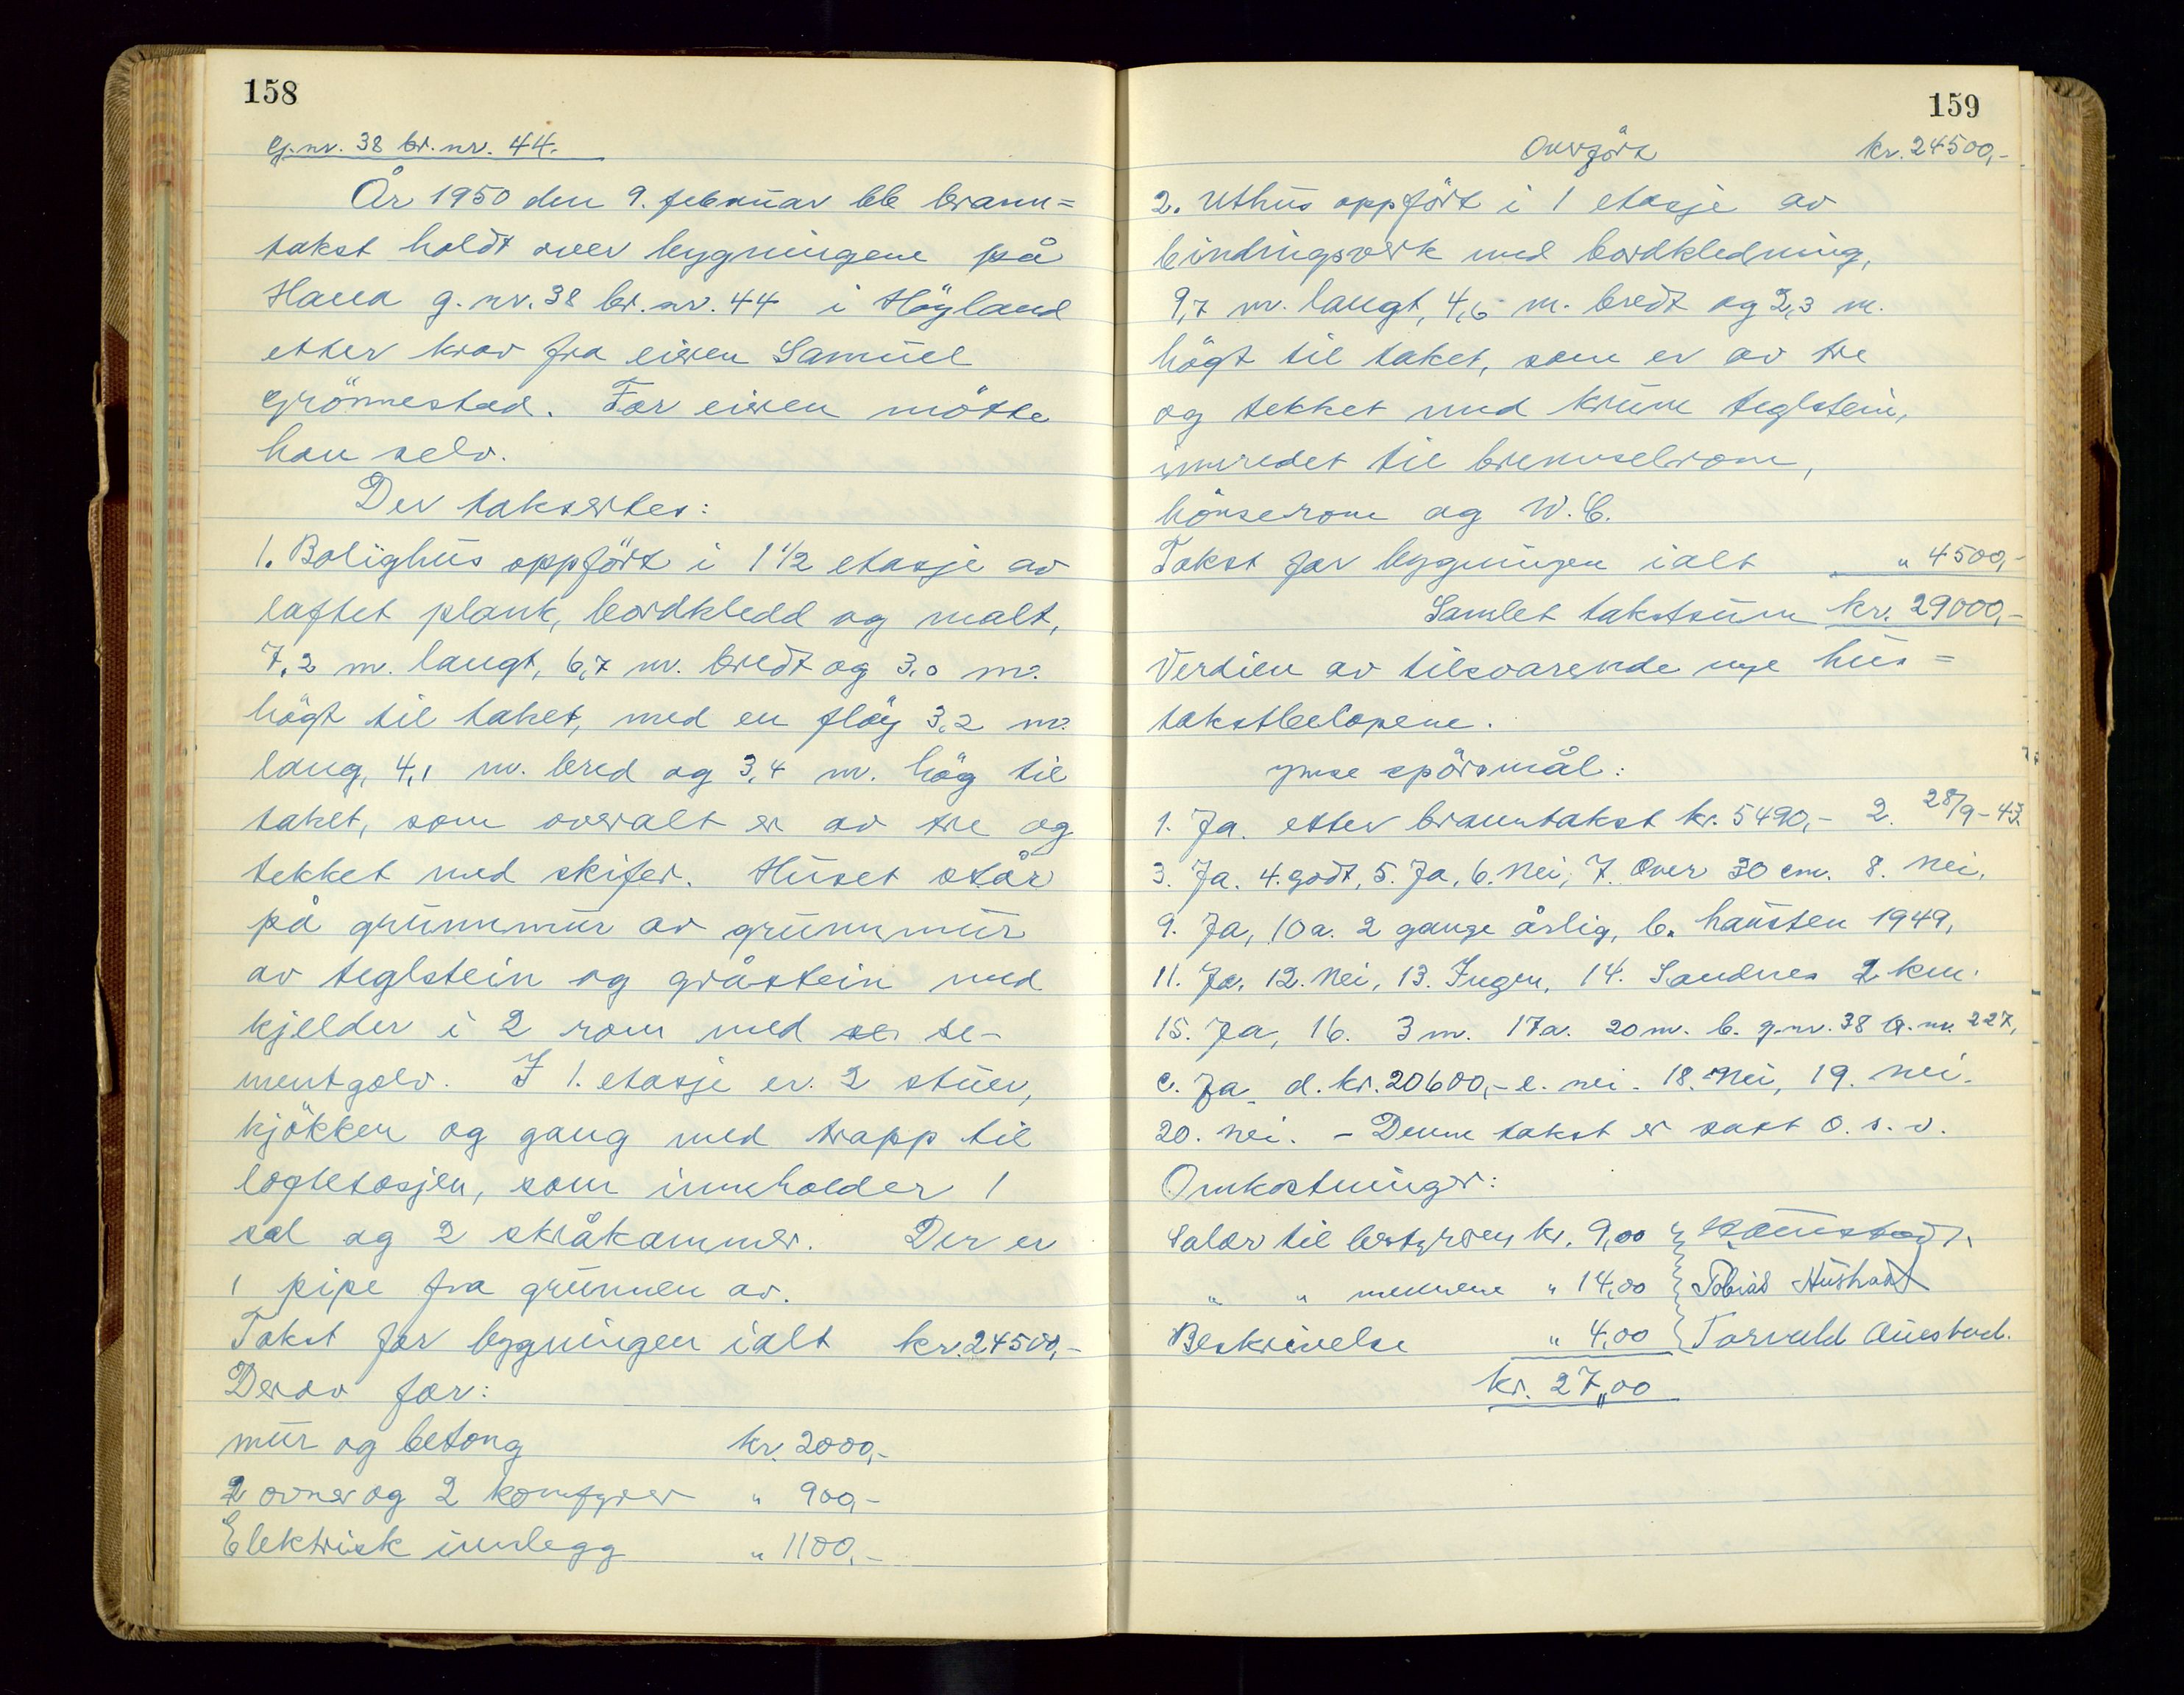 158
G.nr. 38 br.nr. 44.
År 1950 den 9. februar ble brann=
takst holdt over bygningene på
Hana g.nr. 38 br.nr. 44 i Höyland
etter krav fra eieren Samuel
Grönnestad. For eieren mötte
han selv.
Der taksertes:
1. Bolighus oppfört i 1 1/2 etasje av
laftet plank, bordkledd og malt,
7,2 m. langt, 6,7 m. bredt og 3,0 m.
högt til taket, med en flöy 3,2 m.
lang, 4,1 m. bred og 3,4 m. hög til
taket, som overalt er av tre og
tekket med skifer. Huset står
på grunnmur av grunnmur
av teglstein og gråstein med
kjelder i 2 rom med se-
mentgolv. I 1. etasje er 2 stuer,
kjökken og gang med trapp til
loftetasjen, som inneholder 1
sal og 2 skråkammer. Der er
1 pipe fra grunnen av.
Takst for bygningen ialt kr. 24500,-
Derav for:
mur og betong kr. 2000,-
2 ovner og 2 komfyrer " 900,-
Elektrisk innlegg " 1100,-
159
Overfört kr. 24500,-
2. Uthus oppfört i 1 etasje av
bindingsverk med bordkledning,
9,7 m. langt, 4,6 m. bredt og 2,3 m.
högt til taket, som er av tre
og tekket med krum teglstein,
innredet til brenselrom,
hönserom og W.C.
Takst for bygningen ialt " 4500,-
Samlet takstsum kr. 29000,-
Verdien av tilsvarende nye hus =
takstbelöpene.
Ymse spörsmål:
1. Ja. etter branntakst kr. 5490,- 2. 28/9-43.
3. Ja. 4. godt, 5. Ja, 6. Nei, 7. Over 30 cm. 8. Nei,
9. Ja, 10a. 2 gange årlig, b. hausten 1949,
11. Ja. 12. Nei, 13. Ingen, 14. Sandnes 2 km.
15. Ja, 16. 3 m. 17a. 20 m. b. g.nr. 38 br.nr. 227,
c. Ja. d. kr. 20600,- e. nei. 18. Nei, 19. nei.
20. nei. - Denne takst er satt o.s.v.
Omkostninger:
Salær til bestyreren kr. 9,00
" " mennene " 14,00 Tobias Hushatt
Beskrivelse " 4,00 Torvald Auestad.
kr. 27,00